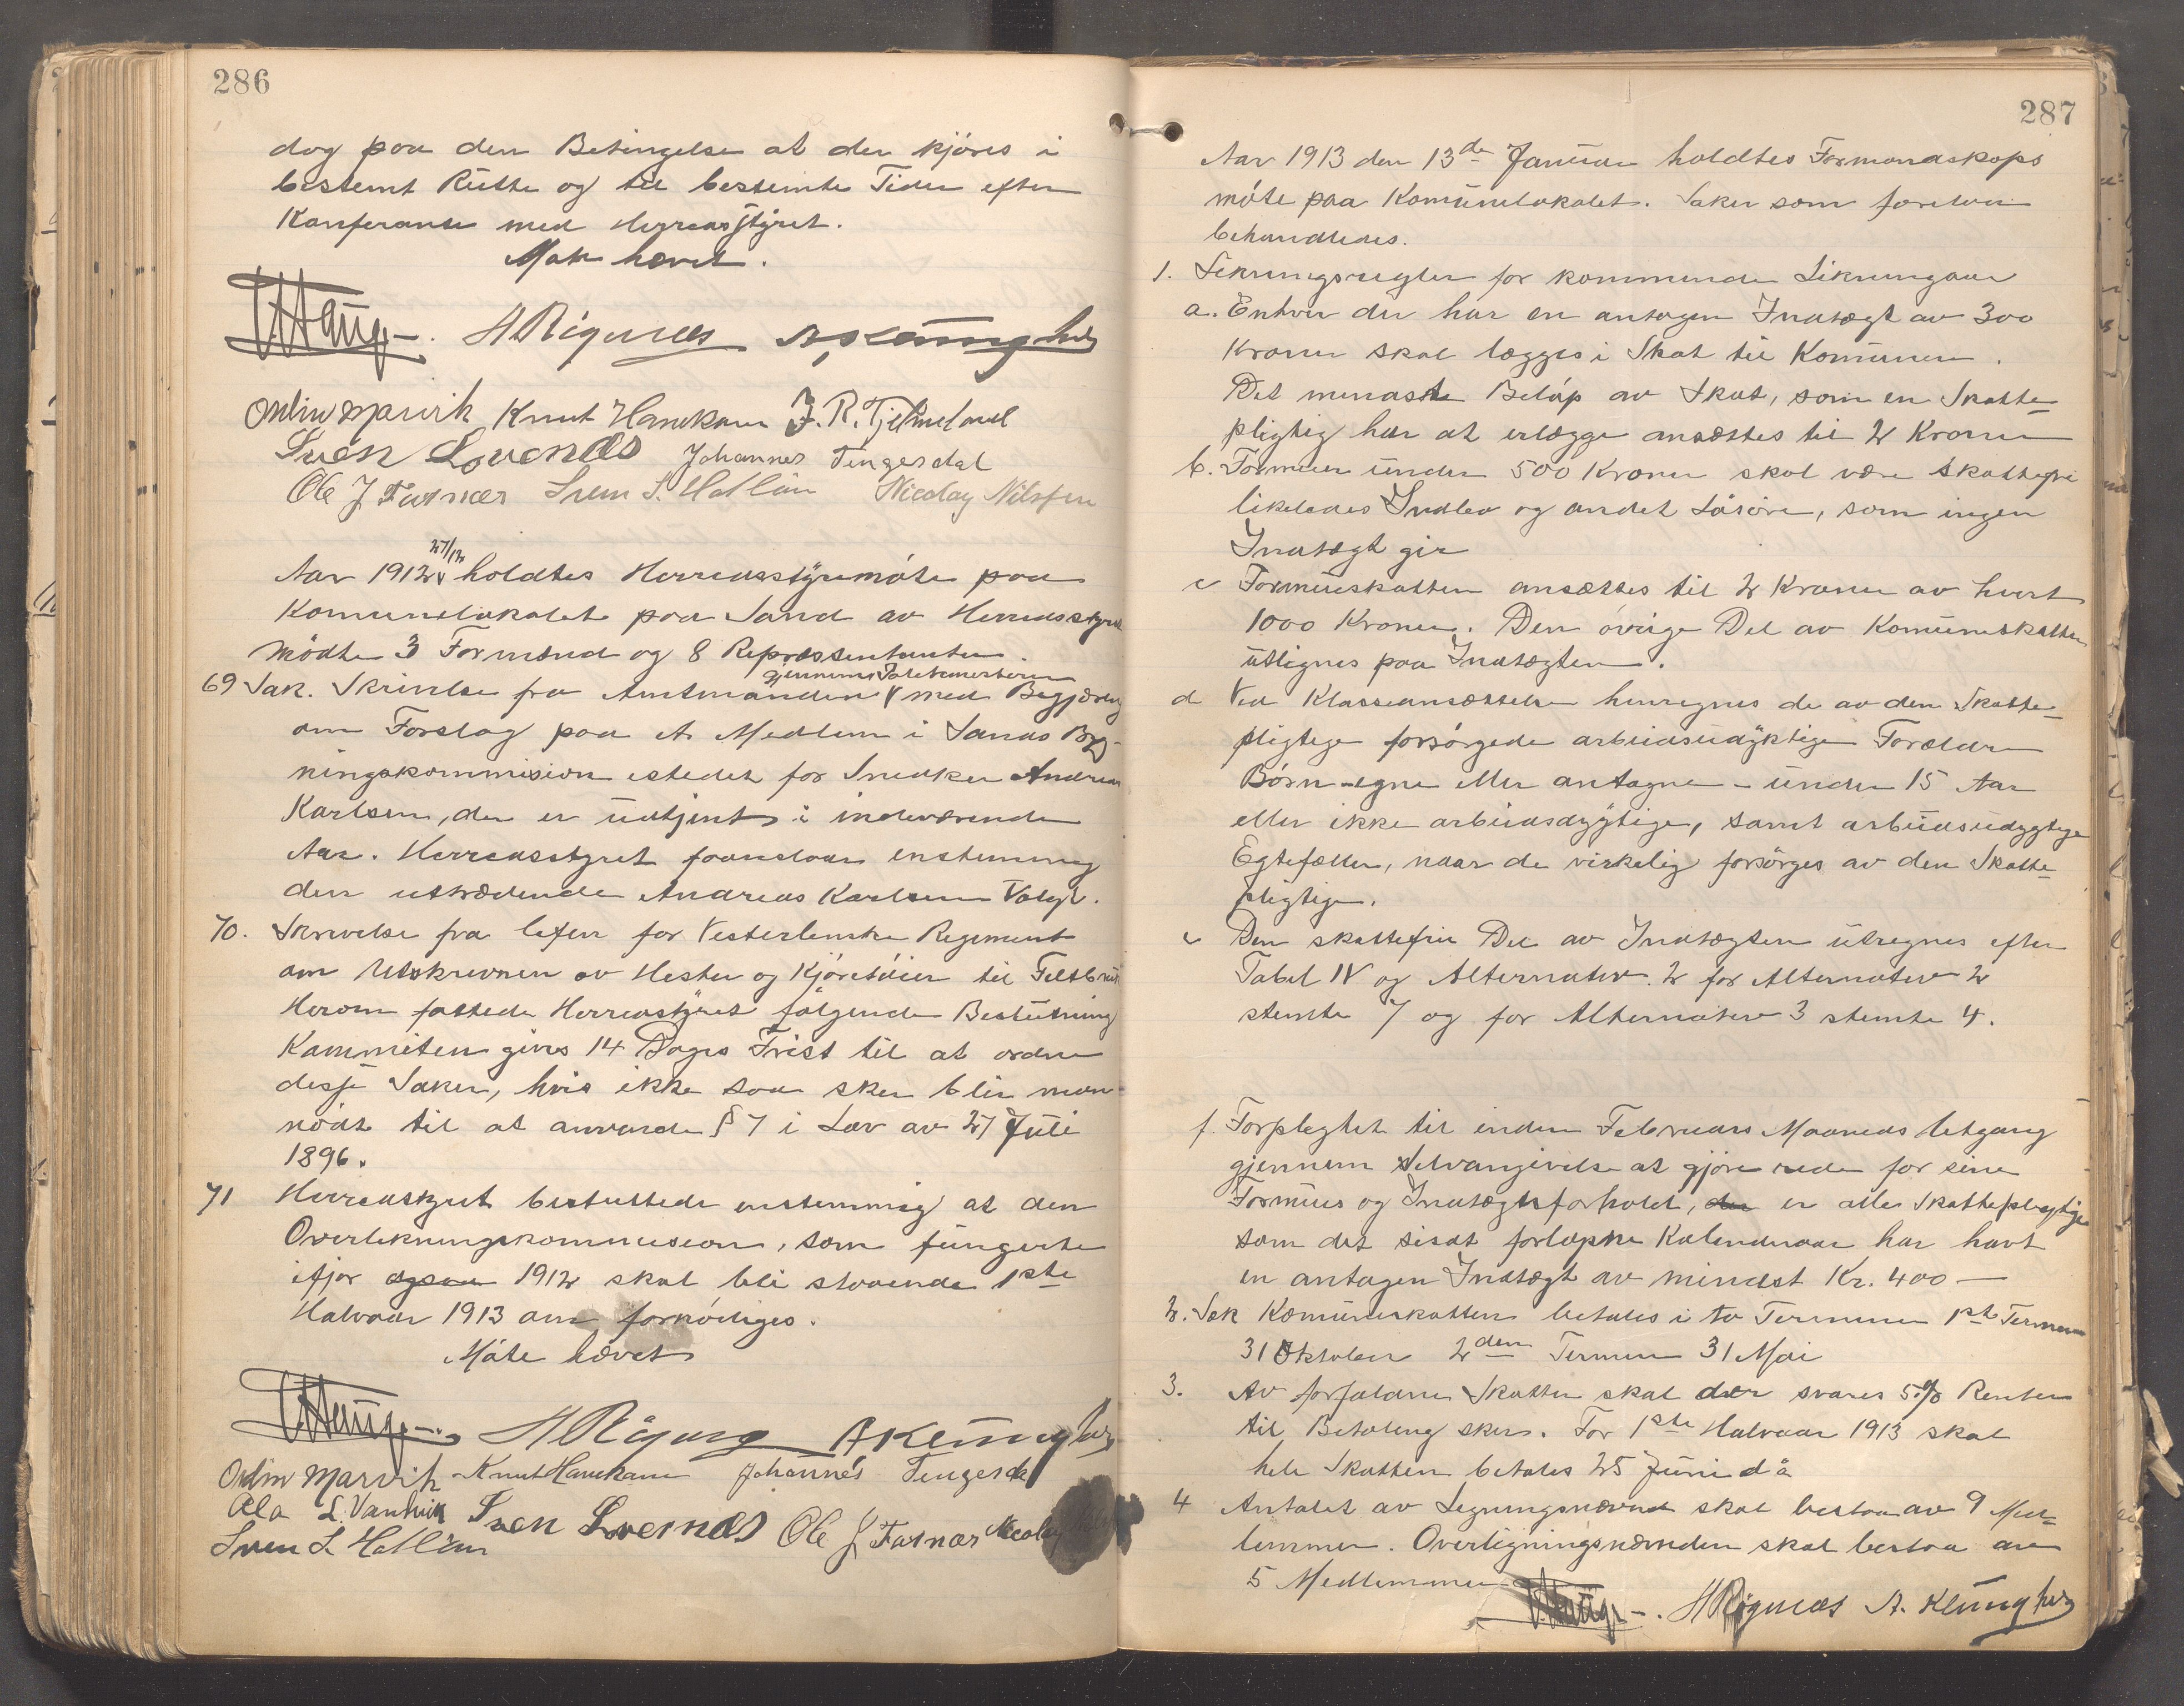 286
dog paa den Betingelse at der kjöres i
bestemt Rutte og til bestemte Tider efter
Konferanse med Herredsstyret.
Möte hævet.
H Rignæs
Odin Marvik Knut Havrkam J. R. Tjelmeland
Sven Lovenæs Johannes Tengesdal
Ole J Farnær Sven S. Hatlön Nicolay Nilsen
Aar 1912 27/12 holdtes Herredsstyremöte paa
Komunelokalet paa Sand av Herredsstyret
mödte 3 Formænd og 8 Repræssentanter.
gjennem
69 Sak. Skrivelse fra Amtmanden med Begjæring
om Forslag paa et Medlem i Sands Byg-
ningskommision istedet for Snedker Andreas
Karlsen, der er uttjent i indeværende
Aar. Herredsstyret foreslaar enstemmig
den uttrædende Andreas Karlsen Valgt.
70. Skrivelse fra Sjefen for Vesterlenske Regiment
om Utskrivnen av Hester og Kjöretöier til Feltbruk
Herom fattede Herredstyret fölgende Beslutning
Kommiteen gives 14 Dages Frist til at ordne
desse Saker, hvis ikke saa sker blir man
nödt til at anvende § 7 i Lov av 27 Juli
1896.
71 Herredstyret besluttede enstemmig at den
Overlikningskommission, som fungerte
ifjor ogsaa 1912 skal bli staaende 1ste
Halvaar 1913 om fornödiges.
Möte hævet
H Rignæs
Odin Marvik Knut Havrkam Johannes Tengesdal
Ola L. Vanvik Sven Lovenæs Ole J Farnær Nicolay
Sven S Hatlön
287
Aar 1913 den 13de Januar holdtes Formandskaps
möte paa Komunelokalet. Saker som forelaa
behandledes.
1. Likningsregler for kommende Likningsaar
a. Enhver der har en antagen Indtægt av 300
Kroner skal lægges i Skat til Komunen.
Det mindste Belöp av Skat, som en Skatte-
pligtig har at erlægge ansættes til 2 Kroner
b. Formuer under 500 Kroner skal være skattefri
likeledes Indbo og andet Lösöre, som ingen
Indtægt gir
c Formueskatten ansættes til 2 Kroner av hvert
1000 Kroner. Den övrige Del av Komuneskatten
utlignes paa Indtægten.
d Ved Klasseansættelsen henregnes de av den Skatte-
pligtige forsörgede arbeidsudyktige Forældre
Börn - egne eller antagne - under 15 Aar
eller ikke arbeidsdygtige, samt arbeidsudygtige
Egtefæller, naar de virkelig forsörges av den Skatte-
pligtige.
e Den skattefrie Del av Indtægten utregnes efter
Tabel IV og Alternativ. 2 for Alternativ 2
stemte 7 og for Alternativ 3 stemte 4.
f. Forpligtet til inden Februars Maaneds Utgang
gjennem Selvangivelse at gjöre rede for sine
Formues og Indtægtsforholdt, der er alle Skattepligtige
som det sisst forlöpne Kalenderaar har havt
en antagen Indtægt av mindst Kr. 400 —
2. Sak Komuneskatten betales i to Terminer 1ste Termin
31 Oktober 2den Termin 31 Mai
3. Av forfaldne Skatter skal der svares 5 % Renter
til Betaling sker. For 1ste Halvaar 1913 skal
hele Skatten betales 25 Juni d å
4 Antalet av Ligningsnævnd skal bestaa av 9 Med-
lemmer. Overligningsnævnden skal bestaa av
5 Medlemmer
H Rignæs